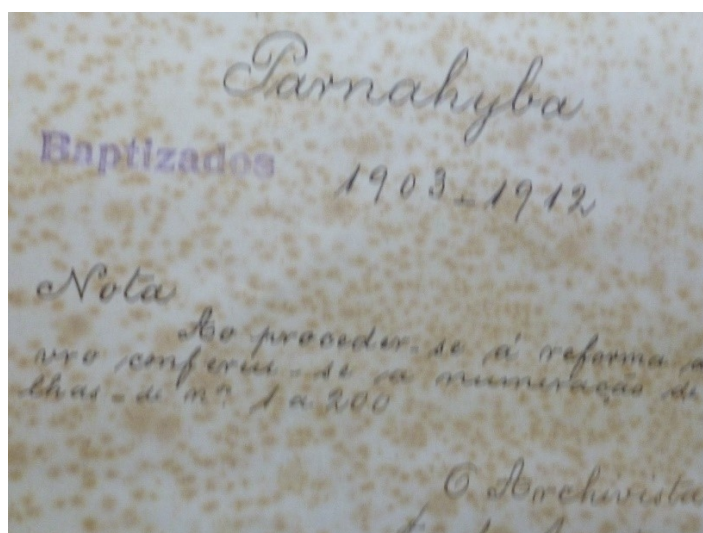 Parnahyba
Baptizados 1903-1912
Nota
Ao proceder-se á reforma
vro conferiu-se a numeração de
lhas-de nº 1 a 200
O Archivista